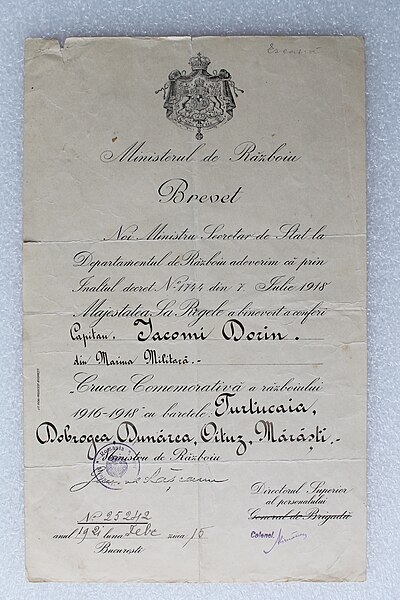 Ministerul de Războiu
Brevet
Noi Ministru Secretar de Stat la
Departamentul de Războiu adeverim că prin
Inaltul decret No 1744 din 7. Iulie 1918
Majestatea Sa Regele a binevoit a conferi
Capitan. Iacomi Dorin.
din Marina Militară.-
"Crucea Comemorativă a războiului
1916-1918" cu baretele. Turtucaia,
Dobrogea, Dunărea, Oituz, Mărăști.-
Ministru de Războiu
Directorul Superior
al personalului
General de Brigadă
Colonel
No 25242
anul 1921 luna Febr ziua 15
București